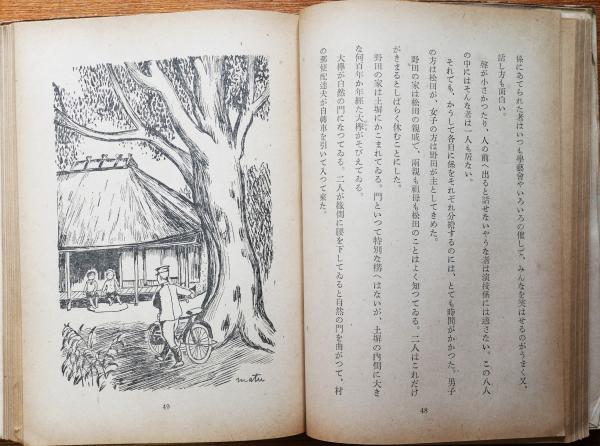 係にあてられた者はいつも學藝會やいろいろの催しで、みんなを笑はせるのがうまく又、
話し方も面白い。
聲が小さかつたり、人の前へ出ると話せないやうな者は演技係には適さない。この八人
の中にはそんな者は一人も居ない。
それでも、かうして各自に係をそれぞれ分擔するのには、とても時間がかかつた。男子
の方は松田が、女子の方は野田が主としてきめた。
野田の家は松田の親戚で、兩親も祖母も松田のことはよく知つてゐる。二人はこれだけ
がきまるとしばらく休むことにした。
野田の家は土塀にかこまれてゐる。門といつて特別な構へはないが、土塀の内側に大き
な何百年か年經た大欅がそびえてゐる。
大欅が自然の門になつてゐる。二人が緣側に腰を下してゐると自然の門を曲がつて、村
の郵便配達夫が自轉車を引いて入つて來た。
48
matu
49